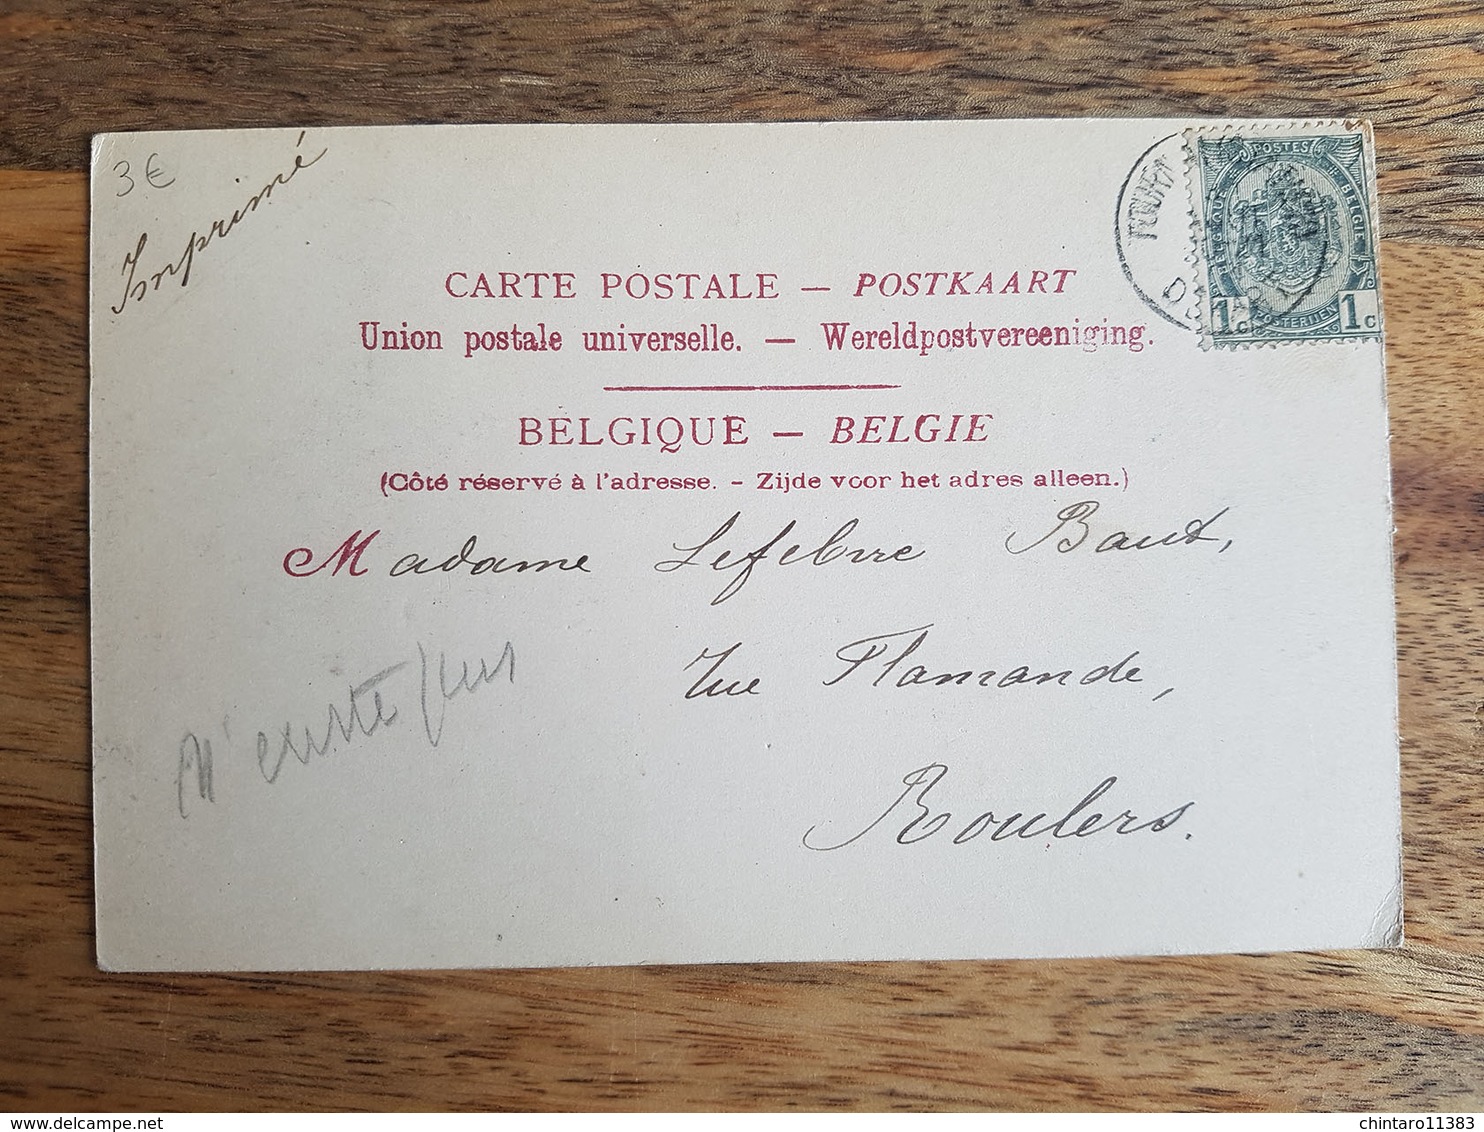 3€
Imprimé
POSTES
BELGIQUE
BELGIE
POSTERIJEN
1c 1c
CARTE POSTALE — POSTKAART
Union postale universelle. — Wereldpostvereeniging.
BELGIQUE — BELGIE
(Côté réservé à l'adresse. - Zijde voor het adres alleen.)
Madame Lefebvre Baut,
rue Flamande,
Roulers.
N'existe plus
chintaro11383